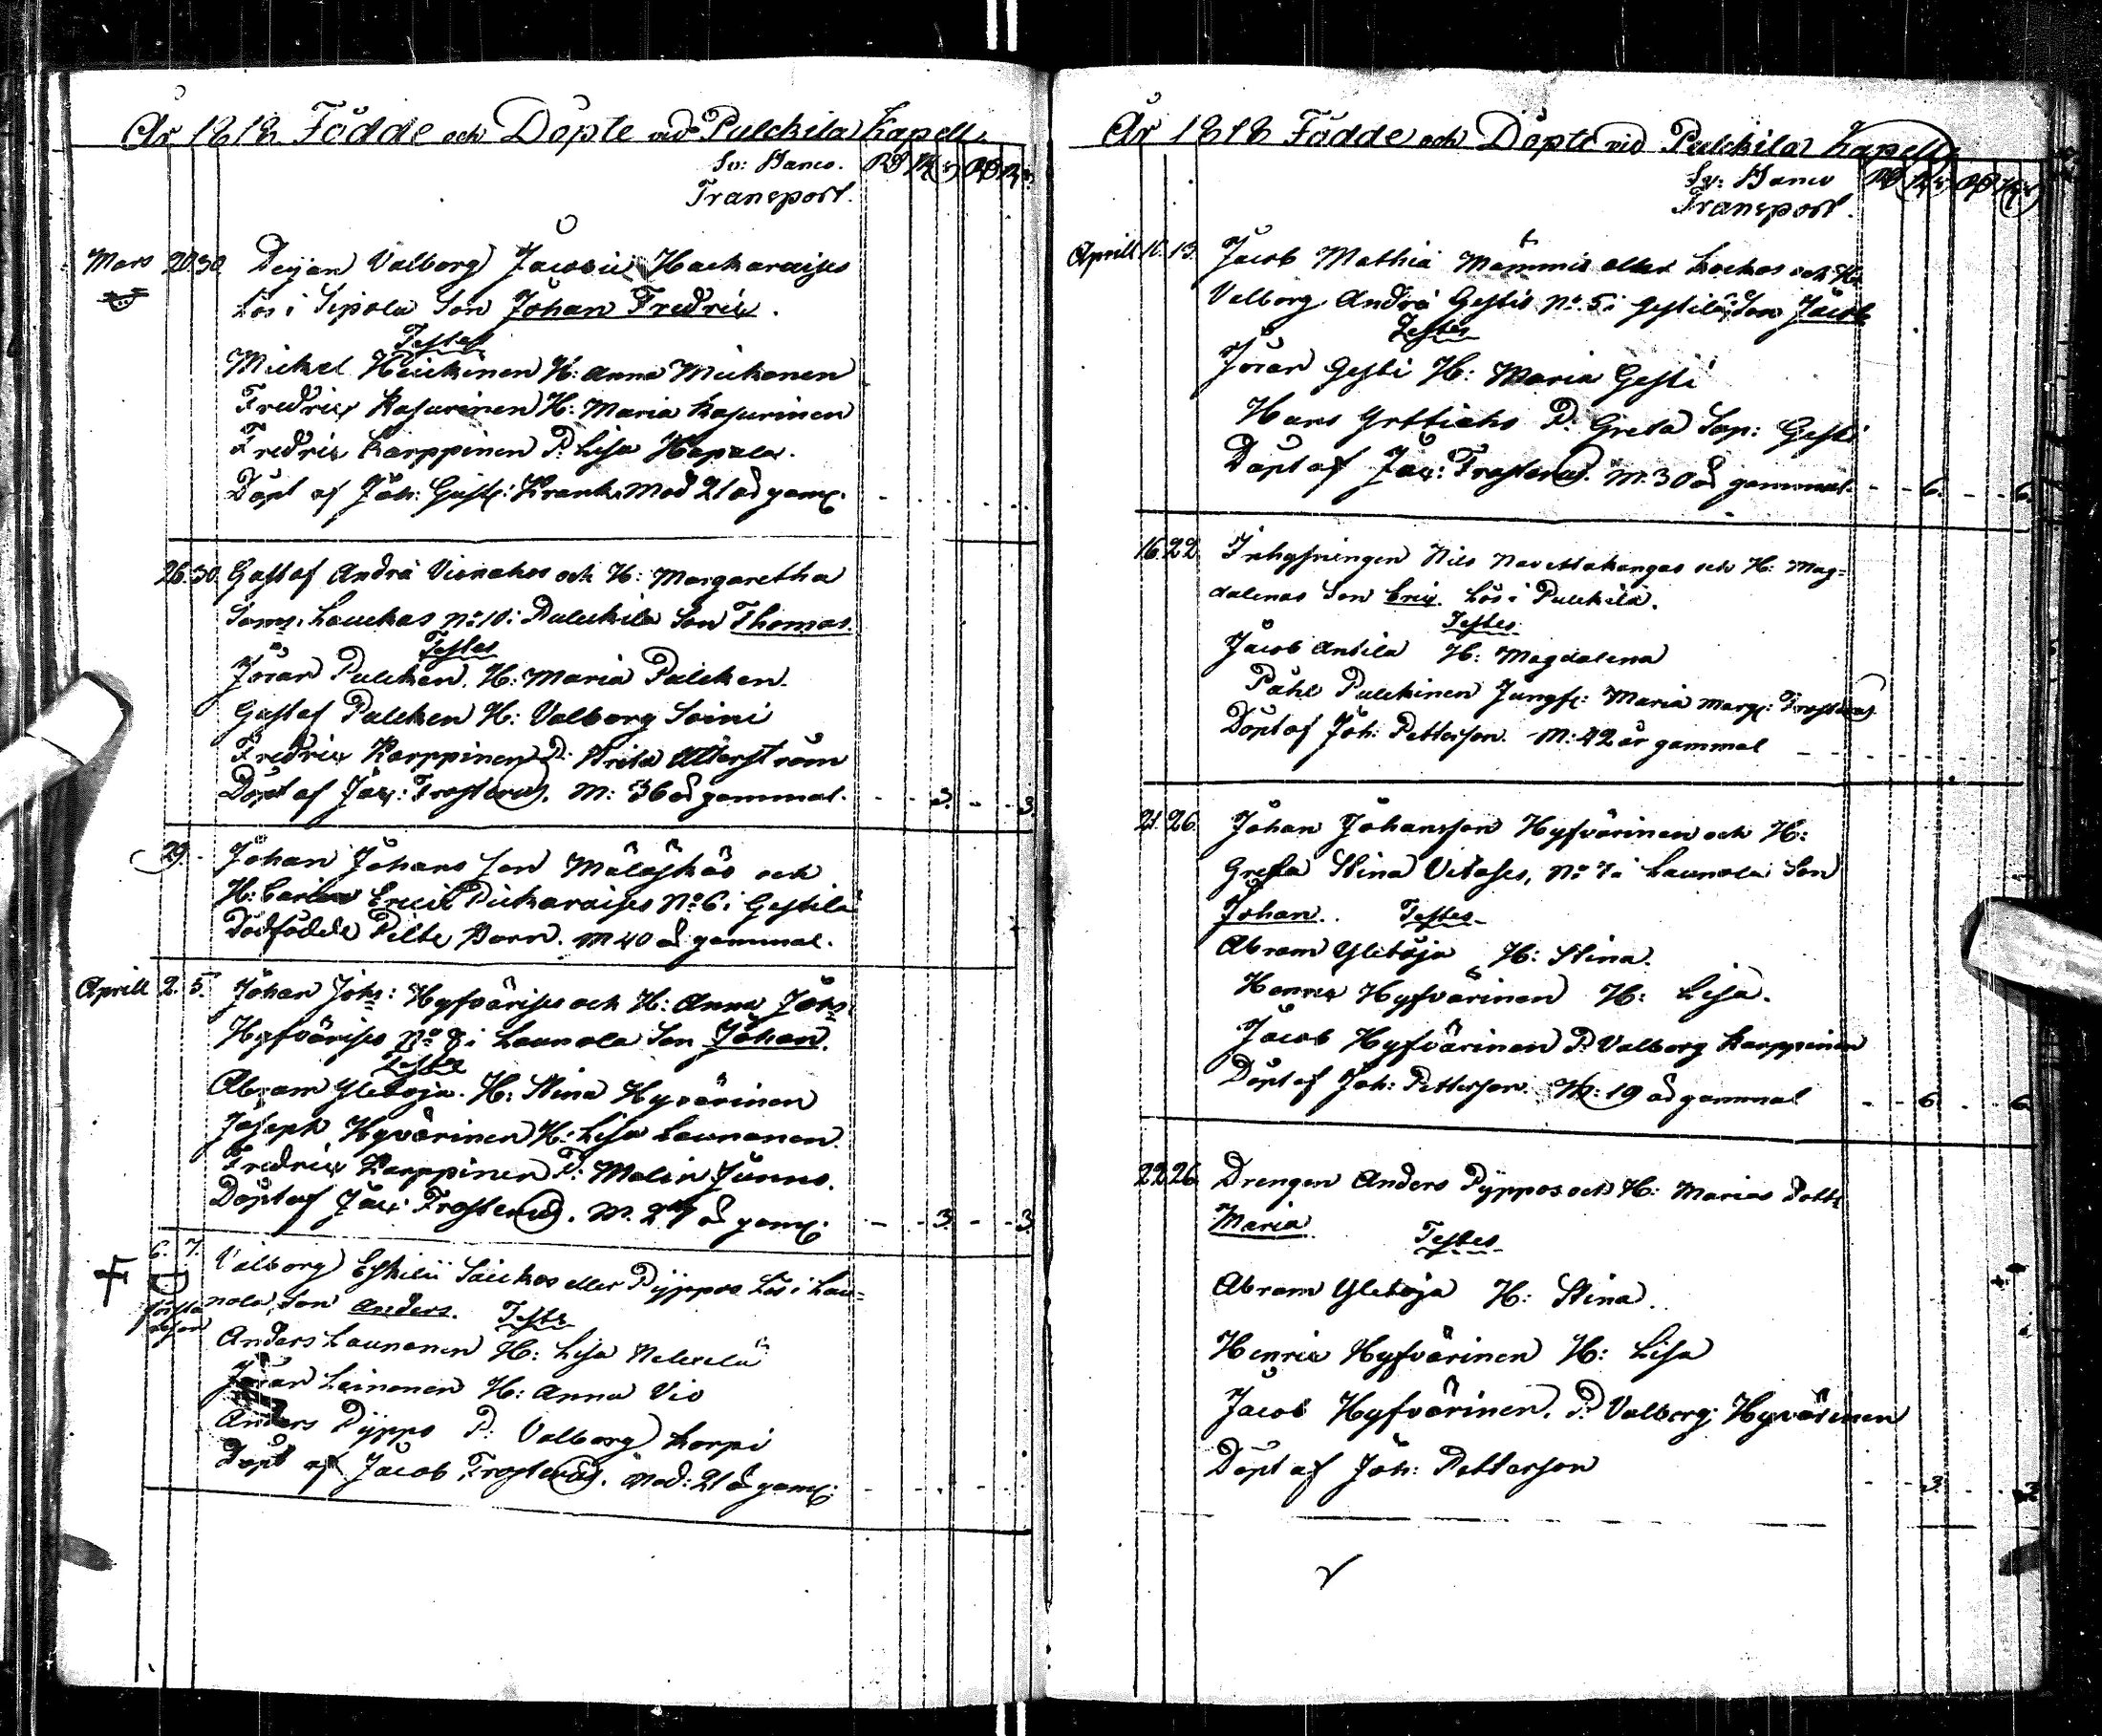 År 1818 Födde och Döpte vid Pulckila Kapell
Sv: Banco. RD
Transport.
Mars 20. 30. Deijan Valborg Jacobii Hackaraises
Lös i Sipola Son Johan Fredric.
Testes
Michel Heickinen H: Anna Mickonen
Fredric Kasurinen H: Maria Kasurinen
Fredric Karppinen P. Lisa Hapala.
Döpt af Joh: Gust: Kranck. Mod 21 år gam:
26. 30. Gustaf Andrä och H: Margaretha
Sams: Lauckas No 10 i Pulckila Son Thomas.
Testes
Jöran Pulcken. H: Maria Pulcken.
Gustaf Pulcken H: Valborg Soini
Fredric Karppinen P: Brita
Döpt af Jac: Frosterus. M: 36 år gammal. - - 3. - - 3.
29. - Johan Johansson Mäläskäs och
H: Carin Ericii Pickaraises No 6 i Gestilä
Dödfödde Pilte Barn. M 40 år gammal.
Aprill 2. 5. Johan Johs: Hyfvärises och H: Anna Johs:
Hyfvärises No 8 i Launola Son Johan.
Testes
Abram Yletoja. H: Stina Hyvärinen
Joseph Hyvärinen H: Lisa Launonen.
Fredric Karppinen P: Malin Junno.
Döpt af Jac: Frosterus. M. 27 år gam: - - 3. - - 3.
6. 7. Valborg Eskilii Säickos eller Pyppos Lös i Lau=
nola Son Anders. Testes
Anders Launonen H: Lisa
Jöran Leinonen H: Anna Vio
Anders Pyppo P. Valborg Korpi
Döpt af Jacob Frosterus. Mod: 21 år gam:
År 1818 Födde och Döpte vid Pulckila Kapell
Sv: Banco RD
Transport.
Aprill 10. 13. Jacob Mathiä Mämmis eller Lockos och H:
Valborg Andrä Gestis No. 5 i Gestilä, Son Jacob
Testes
Jöran Gesti H: Maria Gesti
Hans P: Greta Sap: Gesti
Döpt af Jac: Frosterus. M. 30 år gammal. - - 6. - - 6.
16. 22. Inhysningen Nils Navettakangas och H: Mag=
dalenas Son Eric. Lös i Pulckila.
Testes
Jacob Antila H: Magdalena
Påhl Pulckinen Jungf: Maria Marg: Frosterus
Döpt af Joh: Petterson. M: 42 år gammal
21. 26. Johan Johansson Hyfvärinen och H:
Greta Stina Vitases, No 7 i Launola Son
Johan. Testes
Abram Yletoja H: Stina.
Henric Hyfvärinen H: Lisa.
Jacob Hyfvärinen P. Valborg Karppinen
Döpt af Joh: Petterson. M: 19 år gammal - - 6. - - 6.
22. 26. Drengen Anders Pyppos och H: Marias Dott:
Maria
Testes
Abram Yletoja H: Stina.
Henric Hyfvärinen H: Lisa
Jacob Hyfvärinen. P. Valborg Hyvärinen
Döpt af Joh: Petterson - - 3. - - 3.